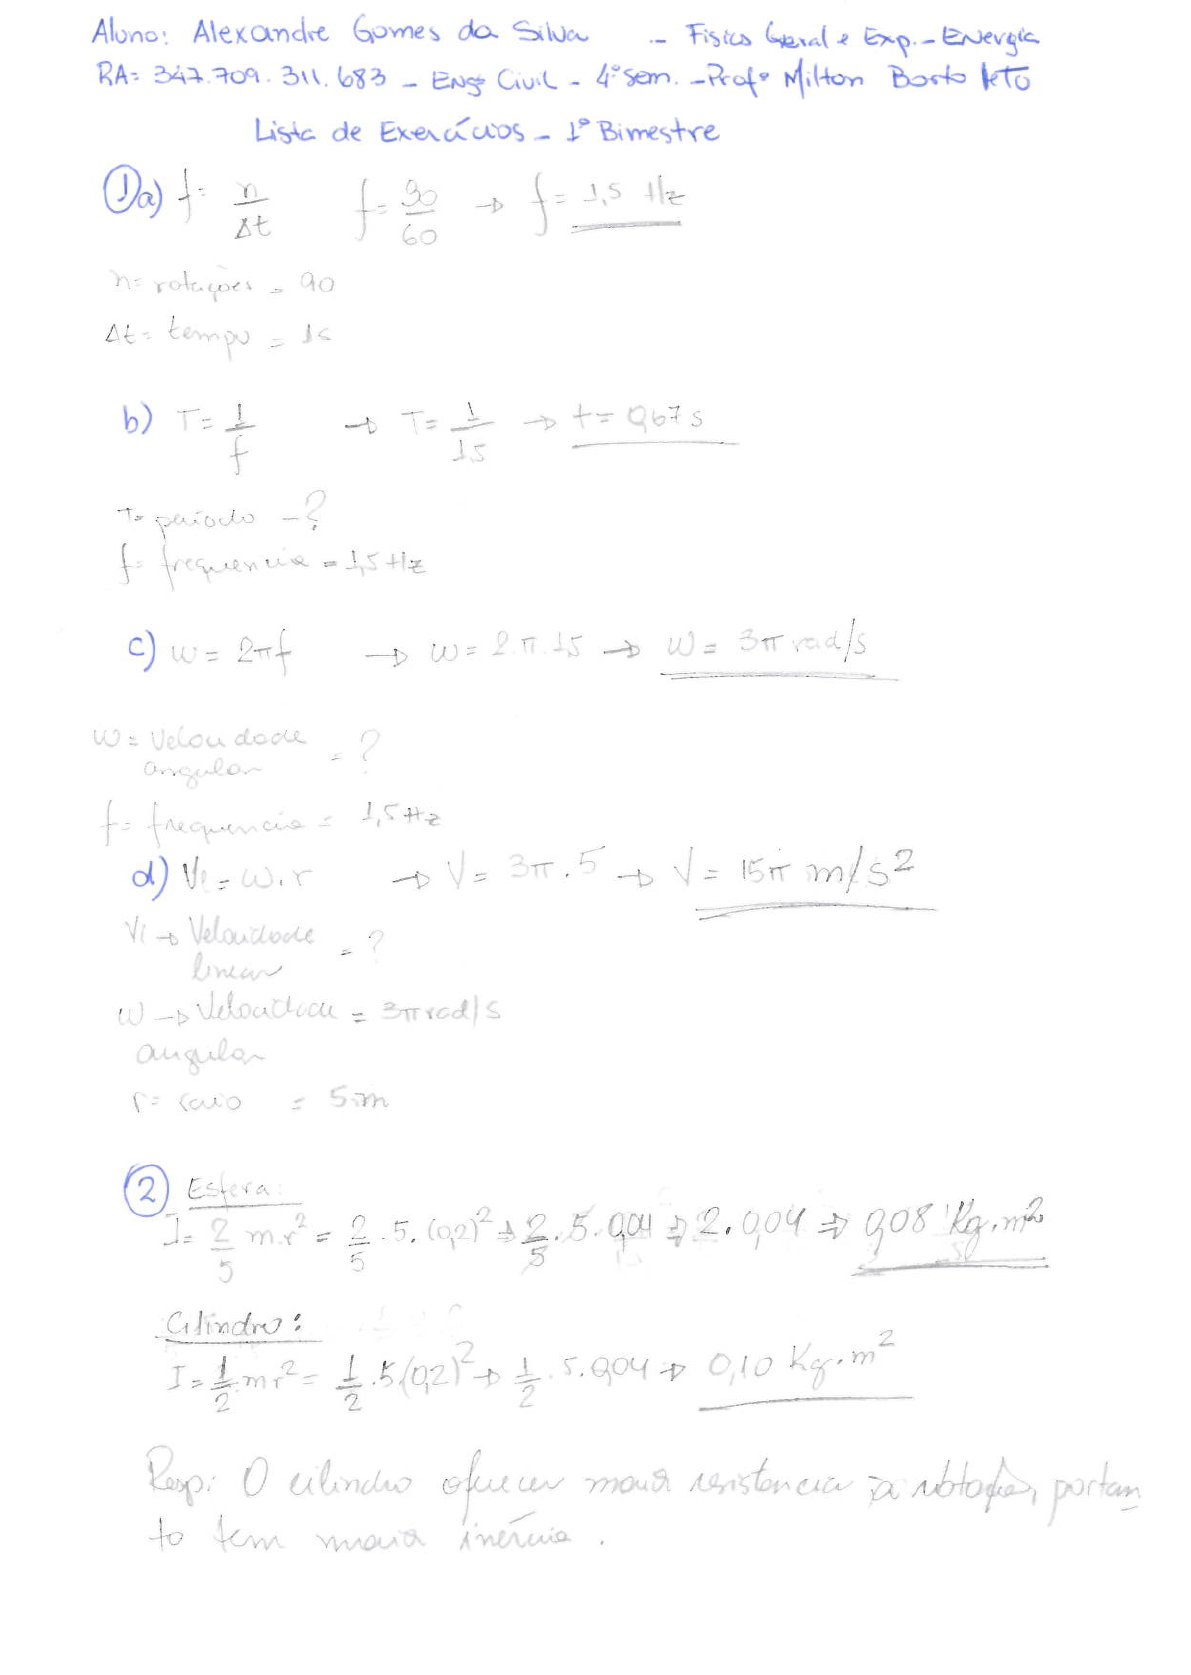 Aluno: Alexandre Gomes da Silva - Física Geral e Exp. - Energia
RA: 347.709.311.683 - Engª Civil - 4º sem. - Profº Milton Borto Neto
Lista de Exercícios - 1º Bimestre
1 a) f = n/Δt f = 90/60 → f = 1,5 Hz
n = rotações = 90
Δt = tempo = 1s
b) T = 1/f → T = 1/1,5 → t = 0,67 s
T = período - ?
f = frequencia = 1,5 Hz
c) w = 2πf → w = 2.π.1,5 → w = 3π rad/s
w = Velocidade angular = ?
f = frequencia = 1,5 Hz
d) Vl = w.r → V = 3π.5 → V = 15π m/s²
Vl → Velocidade linear = ?
w → Velocidade angular = 3π rad/s
r = raio = 5m
2 Esfera:
I = 2/5 m.r² = 2/5 . 5. (0,2)² → 2/5 . 5. 0,04 → 2. 0,04 → 0,08 Kg.m²
Cilindro:
I = 1/2 mr² = 1/2 .5(0,2)² → 1/2 . 5. 0,04 → 0,10 Kg.m²
Resp: O cilindro oferecer maior resistencia a rotação, portan
to tem maior inércia.